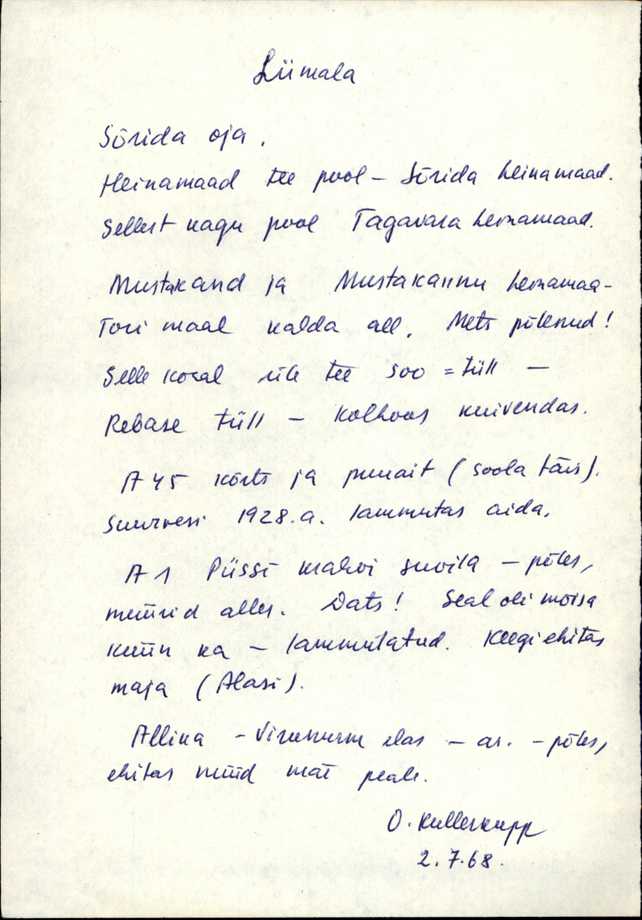 Liimala
Sõrida oja.
Heinamaad tee pool – Sõrida heinamaad.
Sellest nagu pool Tagavara heinamaad.
Mustakand ja Mustakannu heinamaa –
Tori maal kalda all. Mets põlenud!
Selle kocal üle tee soo = tüll –
Rebase tüll – kolhoos kuivendas.
A 45 kõrts ja punait (soola täis).
Suurvesi 1928.a. lammutas aida.
A 1 Püssi mahvi suvila – põles,
müürid alles. Dats! Seal oli moisa
küün ka – lammutatud. Keegi ehitas
maja (Alasi).
Allika – Virunurm elas – – põles,
ehitas nüüd mäe peale.
O. Kullerkupp
2.7.68.